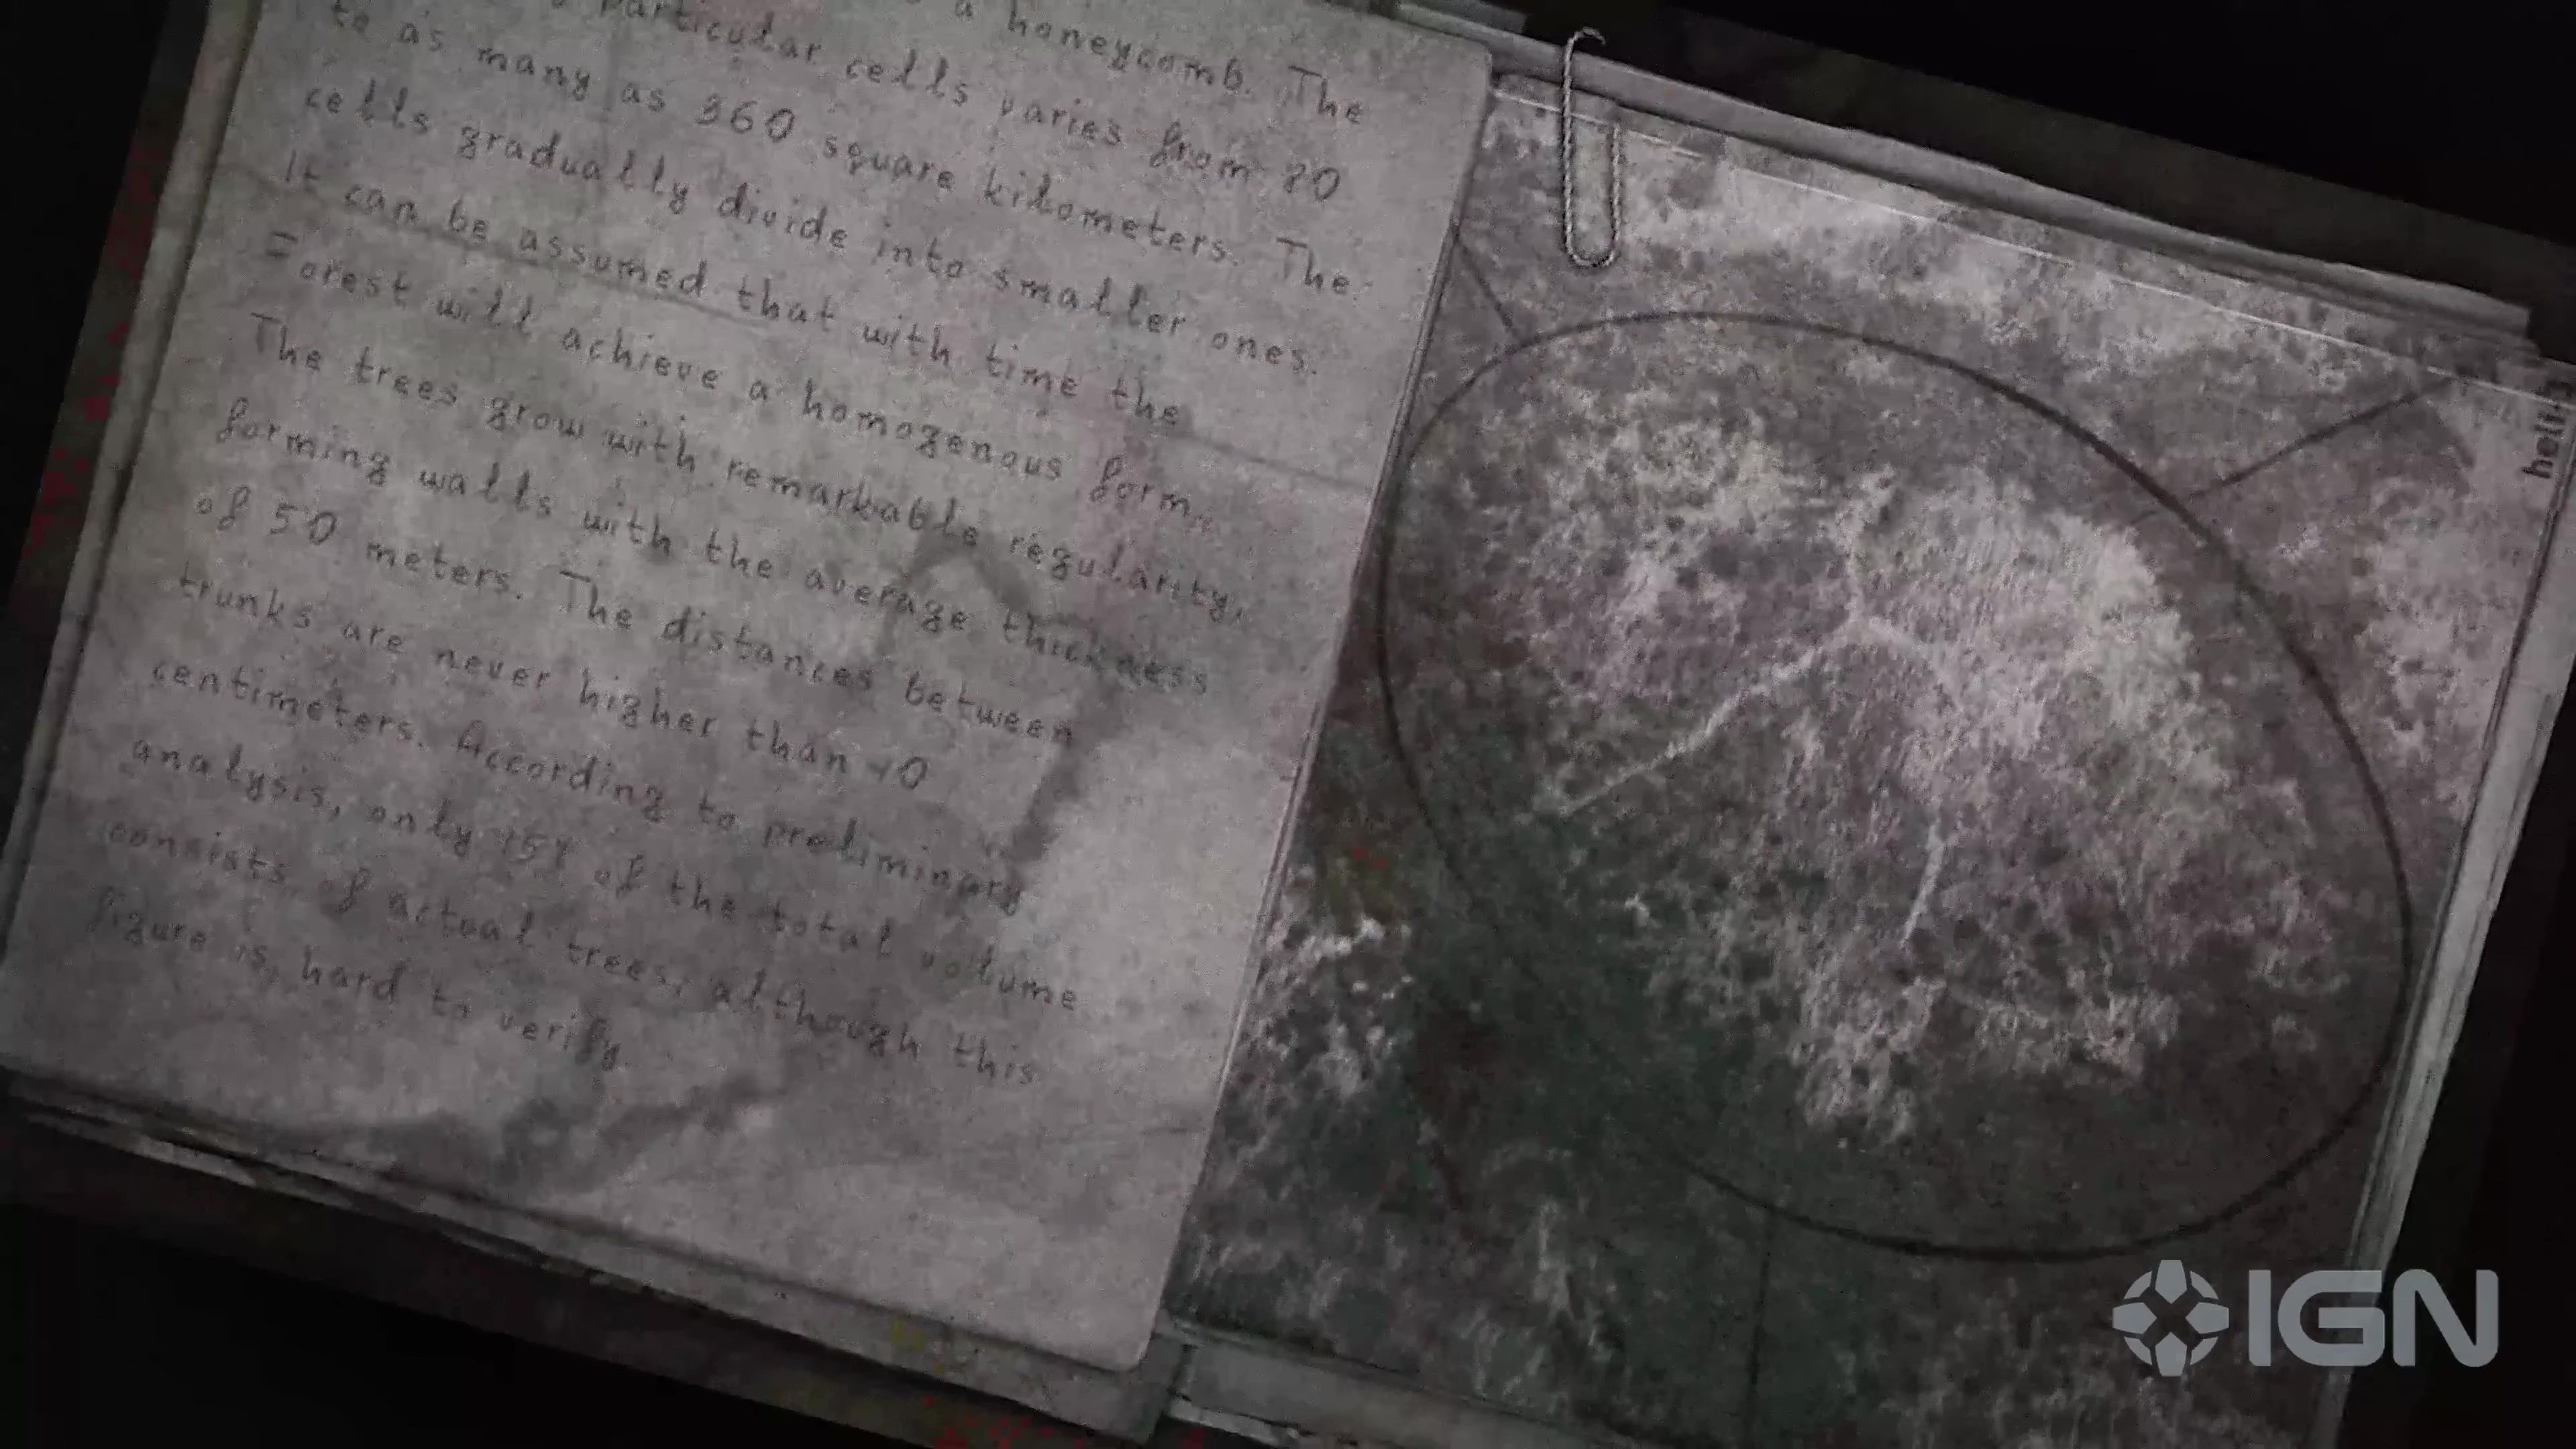 a honeycomb. The
particular cells varies from 80
to as many as 360 square kilometers. The
cells gradually divide into smaller ones.
It can be assumed that with time the
Forest will achieve a homogenous form.
The trees grow with remarkable regularity,
forming walls with the average thickness
of 50 meters. The distances between
trunks are never higher than
centimeters. According to preliminary
analysis, only 15% of the total volume
consists of actual trees, although this
figure is hard to verify.
IGN